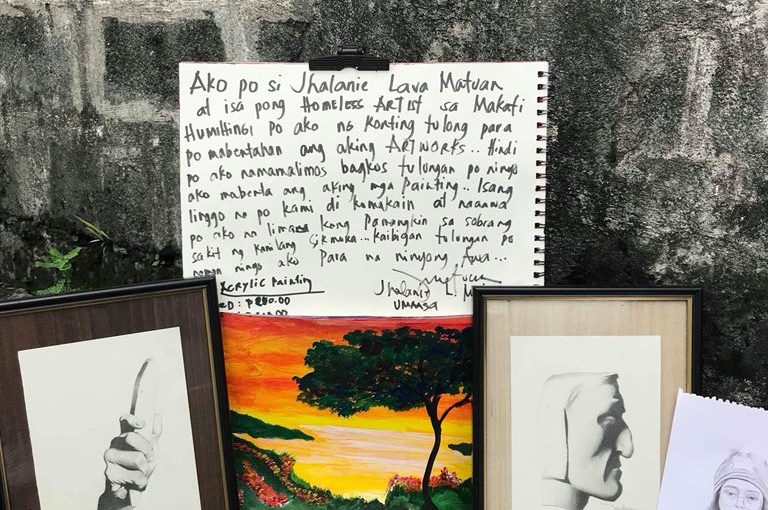 Ako po si Jhalanie Lava Matuan
at isa pong Homeless ARTIST sa Makati
Humihingi po ako ng konting tulong para
po mabentahan ang aking ARTWORKS... Hindi
po ako namamalimos bagkos tulungan po ninyo
ako mabenta ang aking mga Painting.. Isang
linggo na po kami di kumakain at naaawa
po ako na limang kong Pamangkin sa sobrang
sakit ng kanilang sikmura... kaibigan tulungan po
naman ninyo ako Para na ninyong Awa...
Acrylic Painting
Jhalanie L.
UMAASA